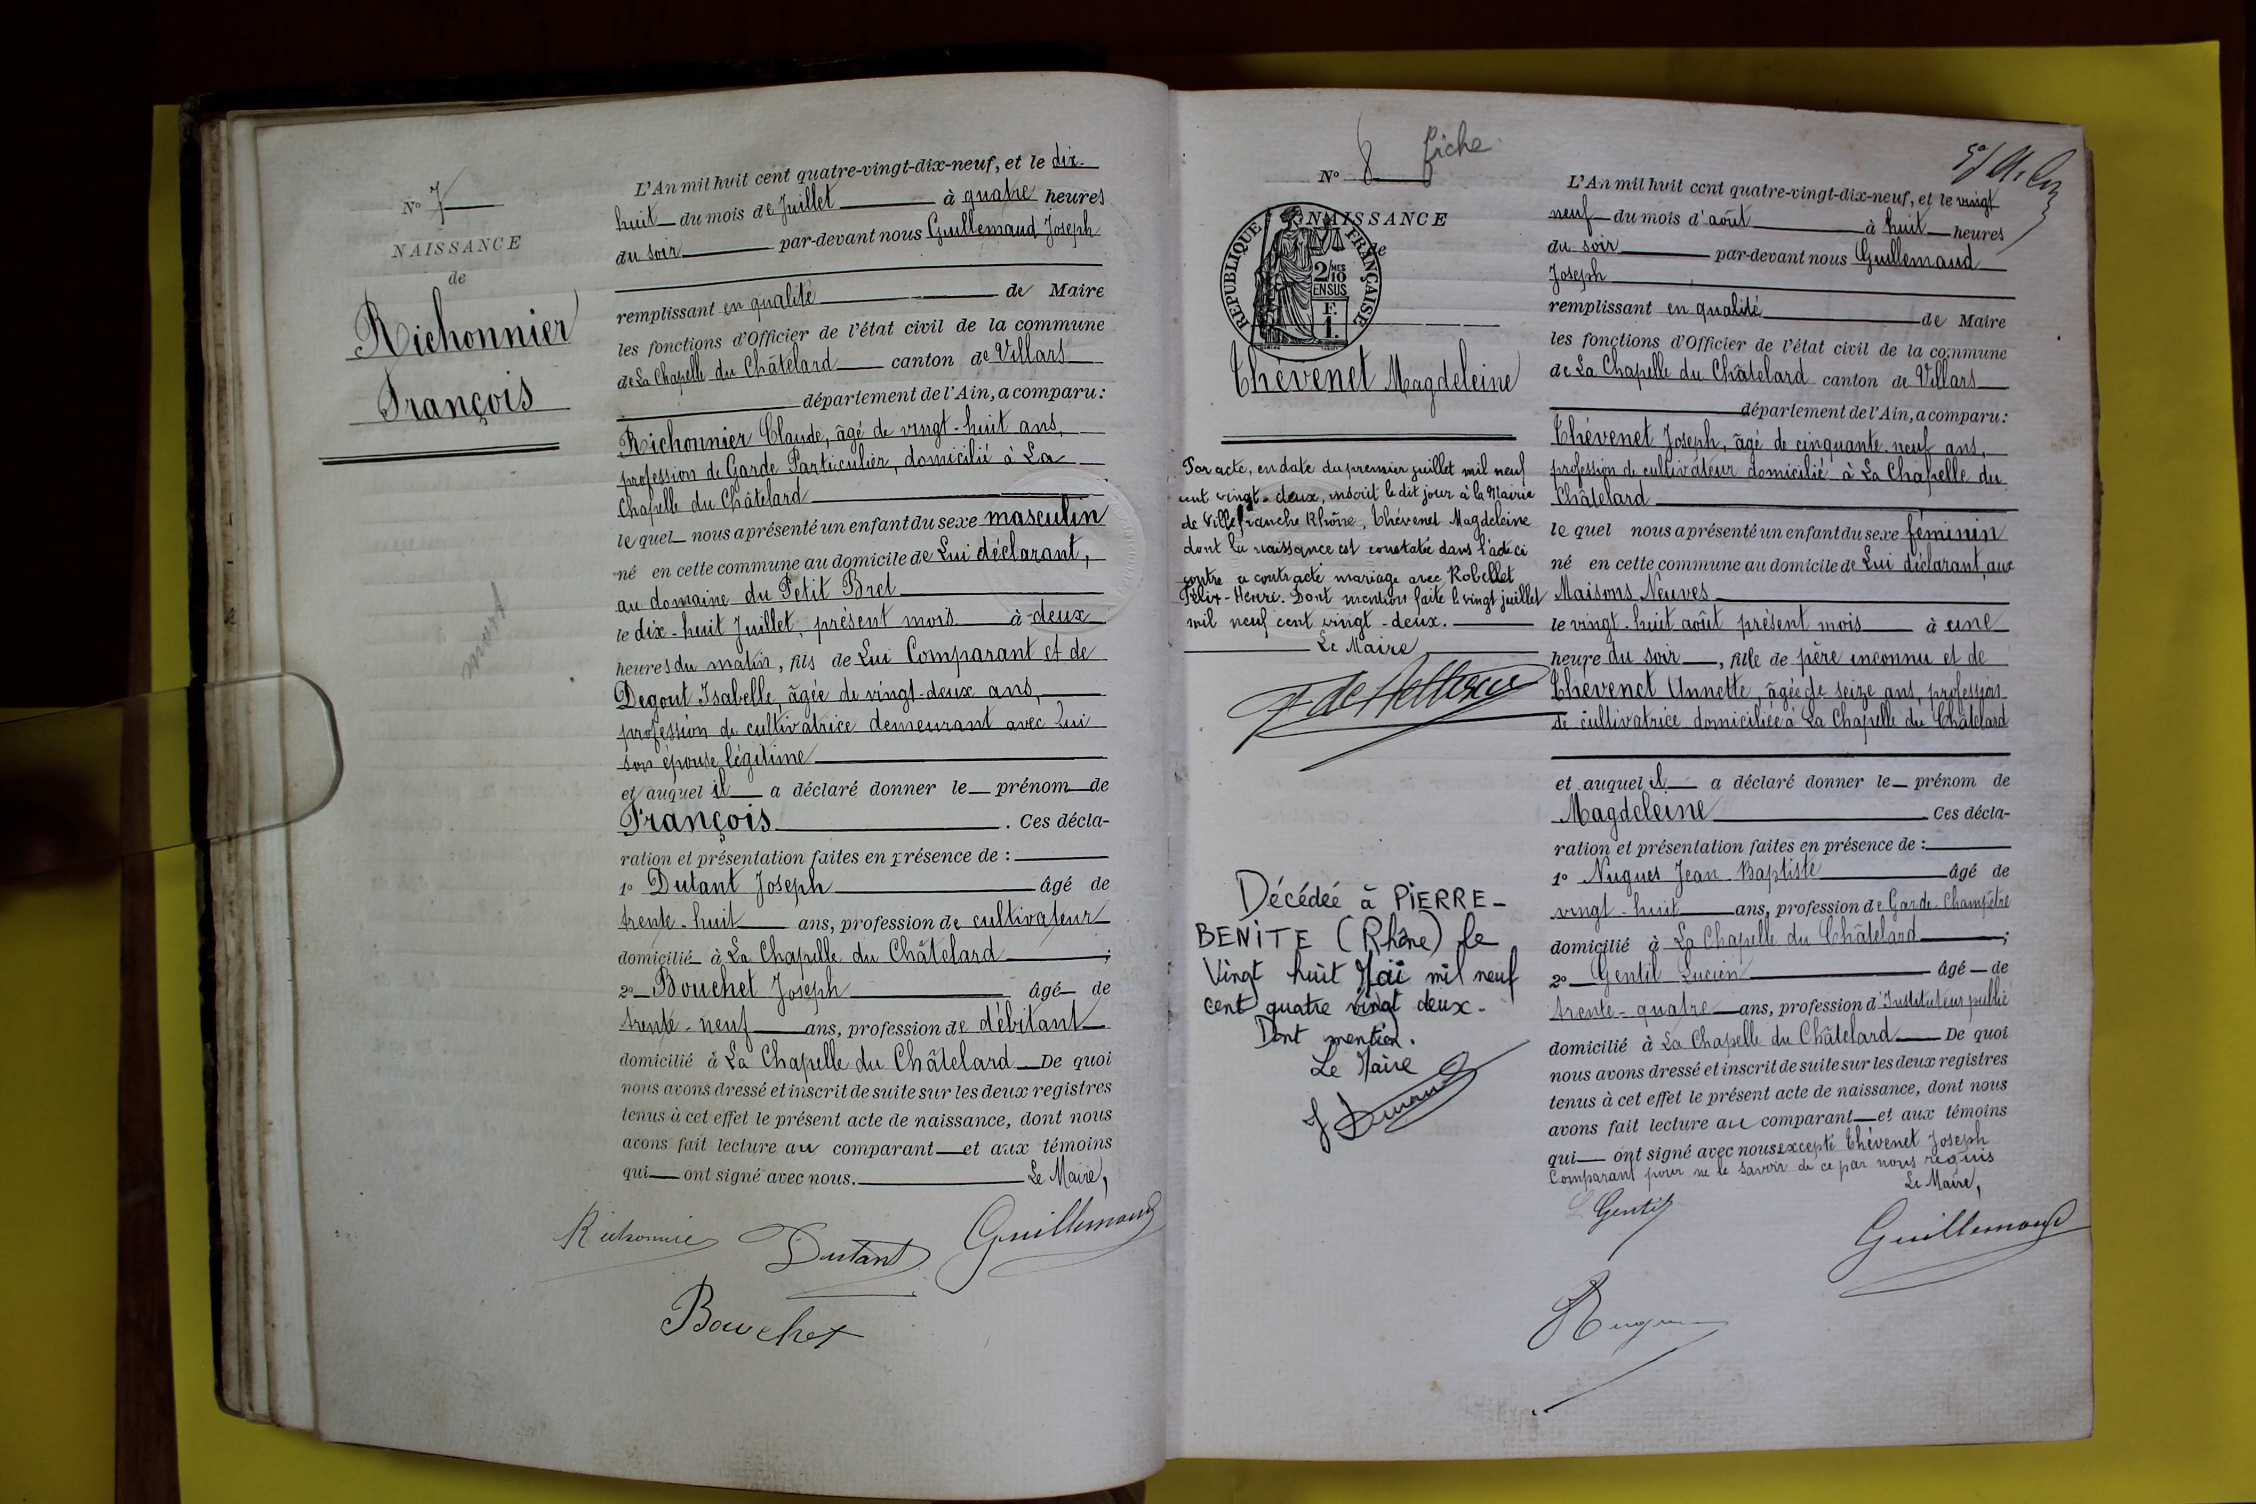 N° 7
NAISSANCE
de
Richonnier
François
L'An mil huit cent quatre-vingt-dix-neuf, et le dix-
huit du mois de Juillet à quatre heures
du soir par-devant nous Guillemaud Joseph
remplissant en qualité de Maire
les fonctions d'Officier de l'état civil de la commune
de La Chapelle du Châtelard canton de Villars
département de l'Ain, a comparu :
Richonnier Claude, âgé de vingt-huit ans,
profession de Garde Particulier, domicilié à La
Chapelle du Châtelard
le quel nous a présenté un enfant du sexe masculin
né en cette commune au domicile de Lui déclarant,
au domaine du Petit Bret
le dix-huit Juillet, présent mois à deux
heures du matin, fils de Lui Comparant et de
Degout Isabelle, âgée de vingt-deux ans,
profession de cultivatrice demeurant avec Lui
son épouse légitime
et auquel il a déclaré donner le prénom de
François . Ces décla-
ration et présentation faites en présence de :
1° Dutant Joseph âgé de
trente-huit ans, profession de cultivateur
domicilié à La Chapelle du Châtelard ;
2° Bouchet Joseph âgé de
trente-neuf ans, profession de débitant
domicilié à La Chapelle du Châtelard De quoi
nous avons dressé et inscrit de suite sur les deux registres
tenus à cet effet le présent acte de naissance, dont nous
avons fait lecture au comparant et aux témoins
qui ont signé avec nous. Le Maire,
Richonnier Dutant Guillemaud
Bouchet
N° 8 fiche
NAISSANCE
de
REPUBLIQUE FRANÇAISE
2/10 MES
EN SUS
F.
1.
Thévenet Magdeleine
Par acte, en date du premier juillet mil neuf
cent vingt-deux, inscrit le dit jour à la Mairie
de Villefranche Rhône, Thévenet Magdeleine
dont la naissance est constatée dans l'acte ci
contre a contracté mariage avec Robellet
Félix-Henri. Dont mention faite le vingt juillet
mil neuf cent vingt-deux.
Le Maire
Décédée à PIERRE-
BENITE (Rhône) le
Vingt huit Mai mil neuf
cent quatre vingt deux.
Dont mention.
Le Maire
L'An mil huit cent quatre-vingt-dix-neuf, et le vingt
neuf du mois d'août à huit heures
du soir par-devant nous Guillemaud
Joseph
remplissant en qualité de Maire
les fonctions d'Officier de l'état civil de la commune
de La Chapelle du Châtelard canton de Villars
département de l'Ain, a comparu :
Thévenet Joseph, âgé de cinquante-neuf ans,
profession de cultivateur domicilié à La Chapelle du
Châtelard
le quel nous a présenté un enfant du sexe féminin
né en cette commune au domicile de Lui déclarant, aux
Maisons Neuves
le vingt-huit août présent mois à une
heure du soir, fille de père inconnu et de
Thévenet Annette, âgée de seize ans, profession
de cultivatrice domiciliée à La Chapelle du Châtelard
et auquel il a déclaré donner le prénom de
Magdeleine Ces décla-
ration et présentation faites en présence de :
1° Nugues Jean Baptiste âgé de
vingt-huit ans, profession de Garde-Champêtre
domicilié à La Chapelle du Châtelard ;
2° Gentil Lucien âgé de
trente-quatre ans, profession d'Instituteur public
domicilié à La Chapelle du Châtelard De quoi
nous avons dressé et inscrit de suite sur les deux registres
tenus à cet effet le présent acte de naissance, dont nous
avons fait lecture au comparant et aux témoins
qui ont signé avec nous excepté Thévenet Joseph
Comparant pour ne le savoir de ce par nous requis
Le Maire,
L. Gentil Guillemaud
Nugues